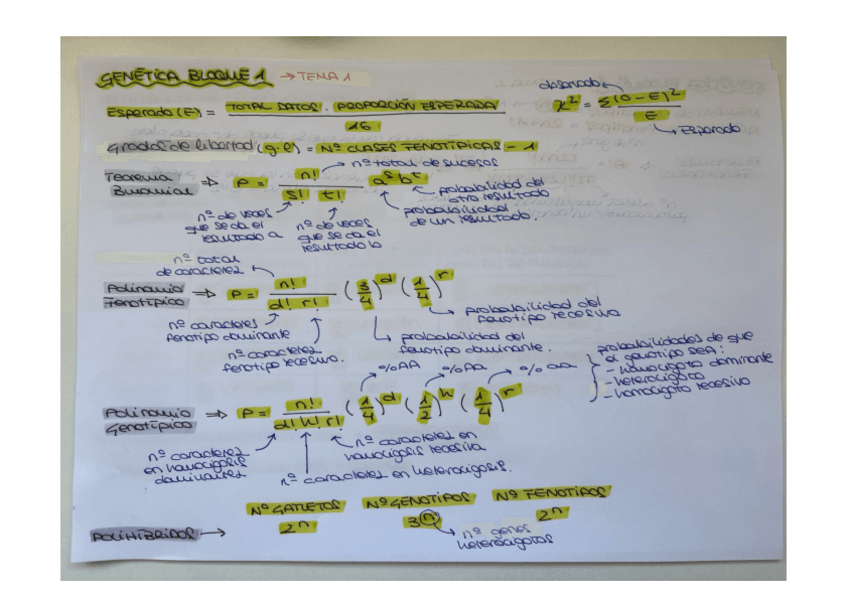 GENÉTICA BLOQUE 1 → TEMA 1
Esperado (E) = TOTAL DATOS . PROPORCIÓN ESPERADA / 16
observado
χ² = Σ(O-E)² / E
→ Esperado
Grados de libertad (g.l) = Nº CLASES FENOTÍPICAS - 1
Teorema Binomial ⇒ P = n! / s! t! a^s b^t
nº total de sucesos
probabilidad del otro resultado
probabilidad de un resultado.
nº de veces que se da el resultado a
nº de veces que se da el resultado b
nº total de caracteres
Polinomio Fenotípico ⇒ P = n! / d! r! (3/4)^d (1/4)^r
probabilidad del fenotipo recesivo
nº caracteres fenotipo dominante
nº caracteres fenotipo recesivo.
probabilidad del fenotipo dominante.
%AA
%AA
% aa
probabilidades de que el genotipo sea:
- homocigoto dominante
- heterocigoto
- homocigoto recesivo
Polinomio Genotípico ⇒ P = n! / d! h! r! (1/4)^d (1/2)^h (1/4)^r
nº caracteres en homocigosis dominantes
nº caracteres en homocigosis recesiva
nº caracteres en heterocigosis.
POLIHÍBRIDOS →
Nº GAMETOS 2^n
Nº GENOTIPOS 3^n
Nº FENOTIPOS 2^n
nº genes heterocigotos